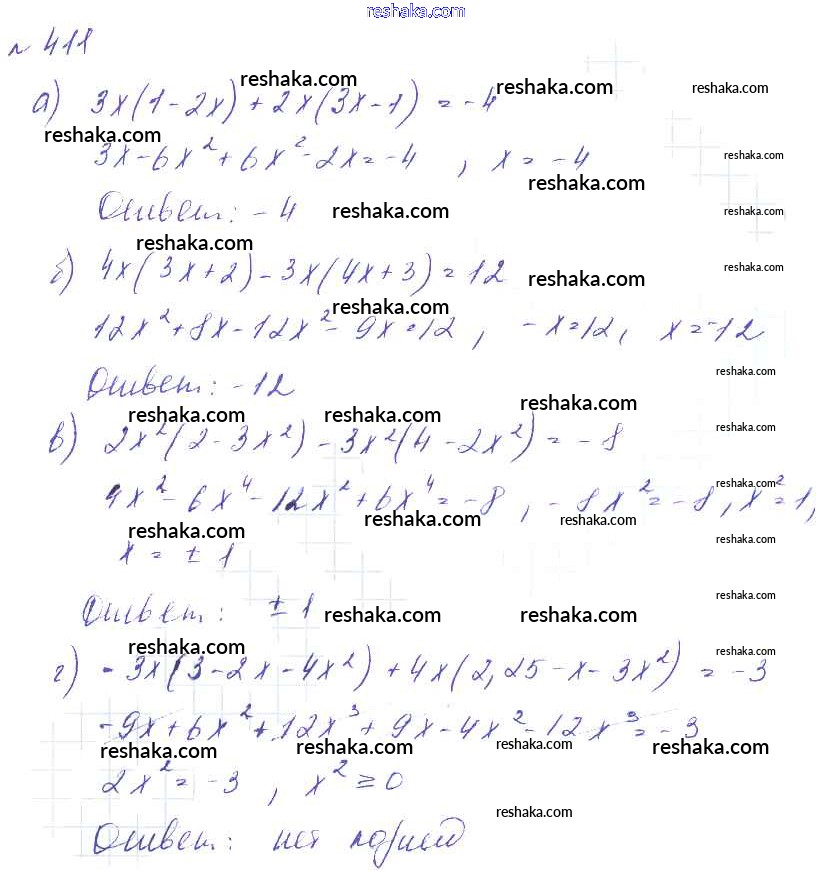 reshaka.com
№ 411
reshaka.com reshaka.com reshaka.com
а) 3x(1-2x)+2x(3x-1) = -4
reshaka.com reshaka.com
3x-6x²+6x²-2x=-4 , x = -4
reshaka.com
Ответ: -4 reshaka.com reshaka.com
reshaka.com
б) 4x(3x+2)-3x(4x+3)=12 reshaka.com reshaka.com
reshaka.com
12x²+8x-12x²-9x=12 , -x=12, x=-12
reshaka.com
Ответ: -12
reshaka.com reshaka.com reshaka.com
в) 2x²(2-3x²)-3x²(4-2x²)=-8 reshaka.com
4x²-6x⁴-12x²+6x⁴=-8 , -8x²=-8, x²=1, reshaka.com
reshaka.com reshaka.com reshaka.com
x = ±1
reshaka.com
Ответ: ±1 reshaka.com reshaka.com
reshaka.com reshaka.com
г) -3x(3-2x-4x²)+4x(2,25-x-3x²) = -3
-9x+6x²+12x³+9x-4x²-12x³=-3
reshaka.com reshaka.com reshaka.com reshaka.com
2x²=-3 , x²≥0
reshaka.com
Ответ: нет корней